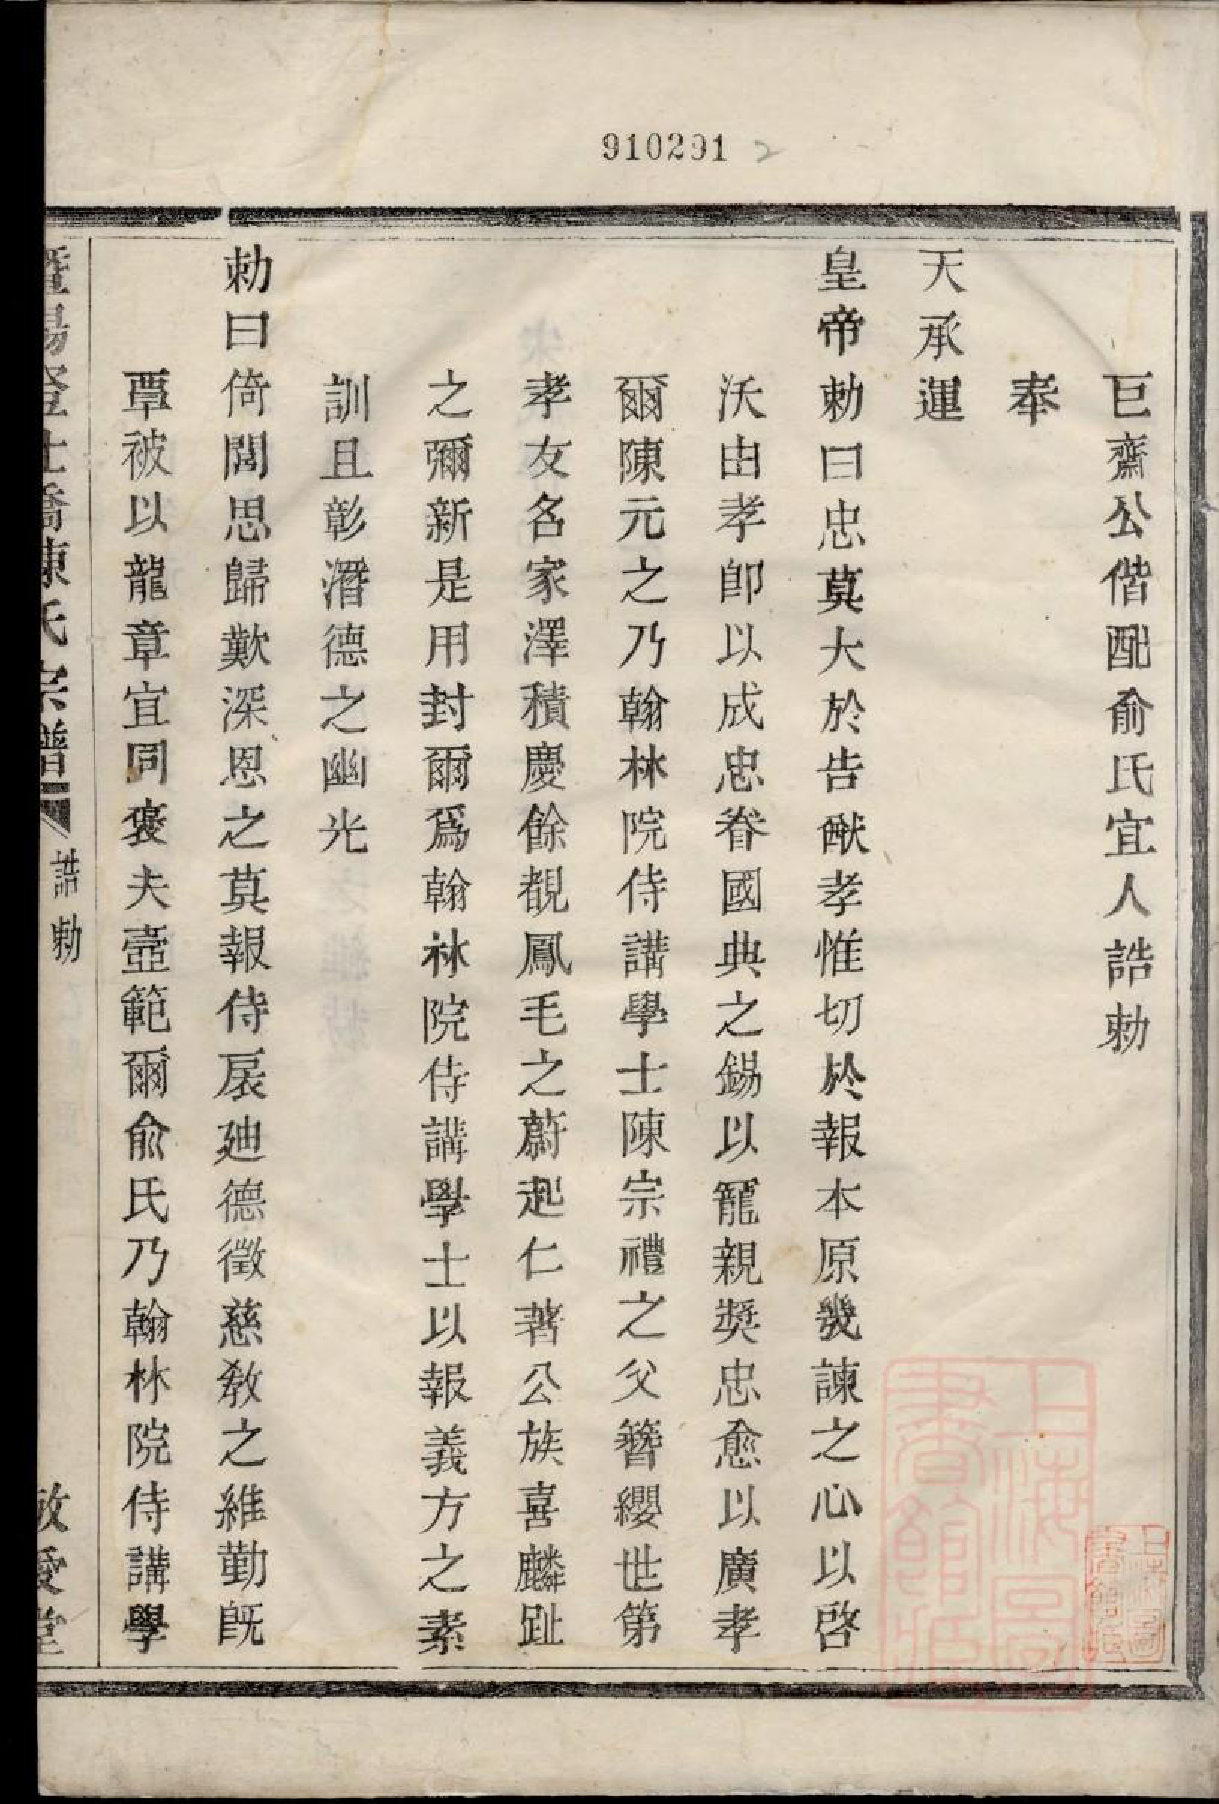 910291 2
巨齋公偕配俞氏宜人誥勅
奉
天承運
皇帝勅曰忠莫大於告猷孝惟切於報本原幾諫之心以啓
沃由孝卽以成忠眷國典之錫以寵親奬忠愈以廣孝
爾陳元之乃翰林院侍講學士陳宗禮之父簪纓世第
孝友名家澤積慶餘覩鳳毛之蔚起仁著公族喜麟趾
之彌新是用封爾爲翰林院侍講學士以報義方之素
訓且彰潛德之幽光
勅曰倚閭思歸歎深恩之莫報侍扆廸德徵慈教之維勤旣
覃被以龍章宜同褒夫壼範爾俞氏乃翰林院侍講學
暨陽登仕橋陳氏宗譜
誥勅
敬愛堂
上海圖書館藏
上海圖書館藏